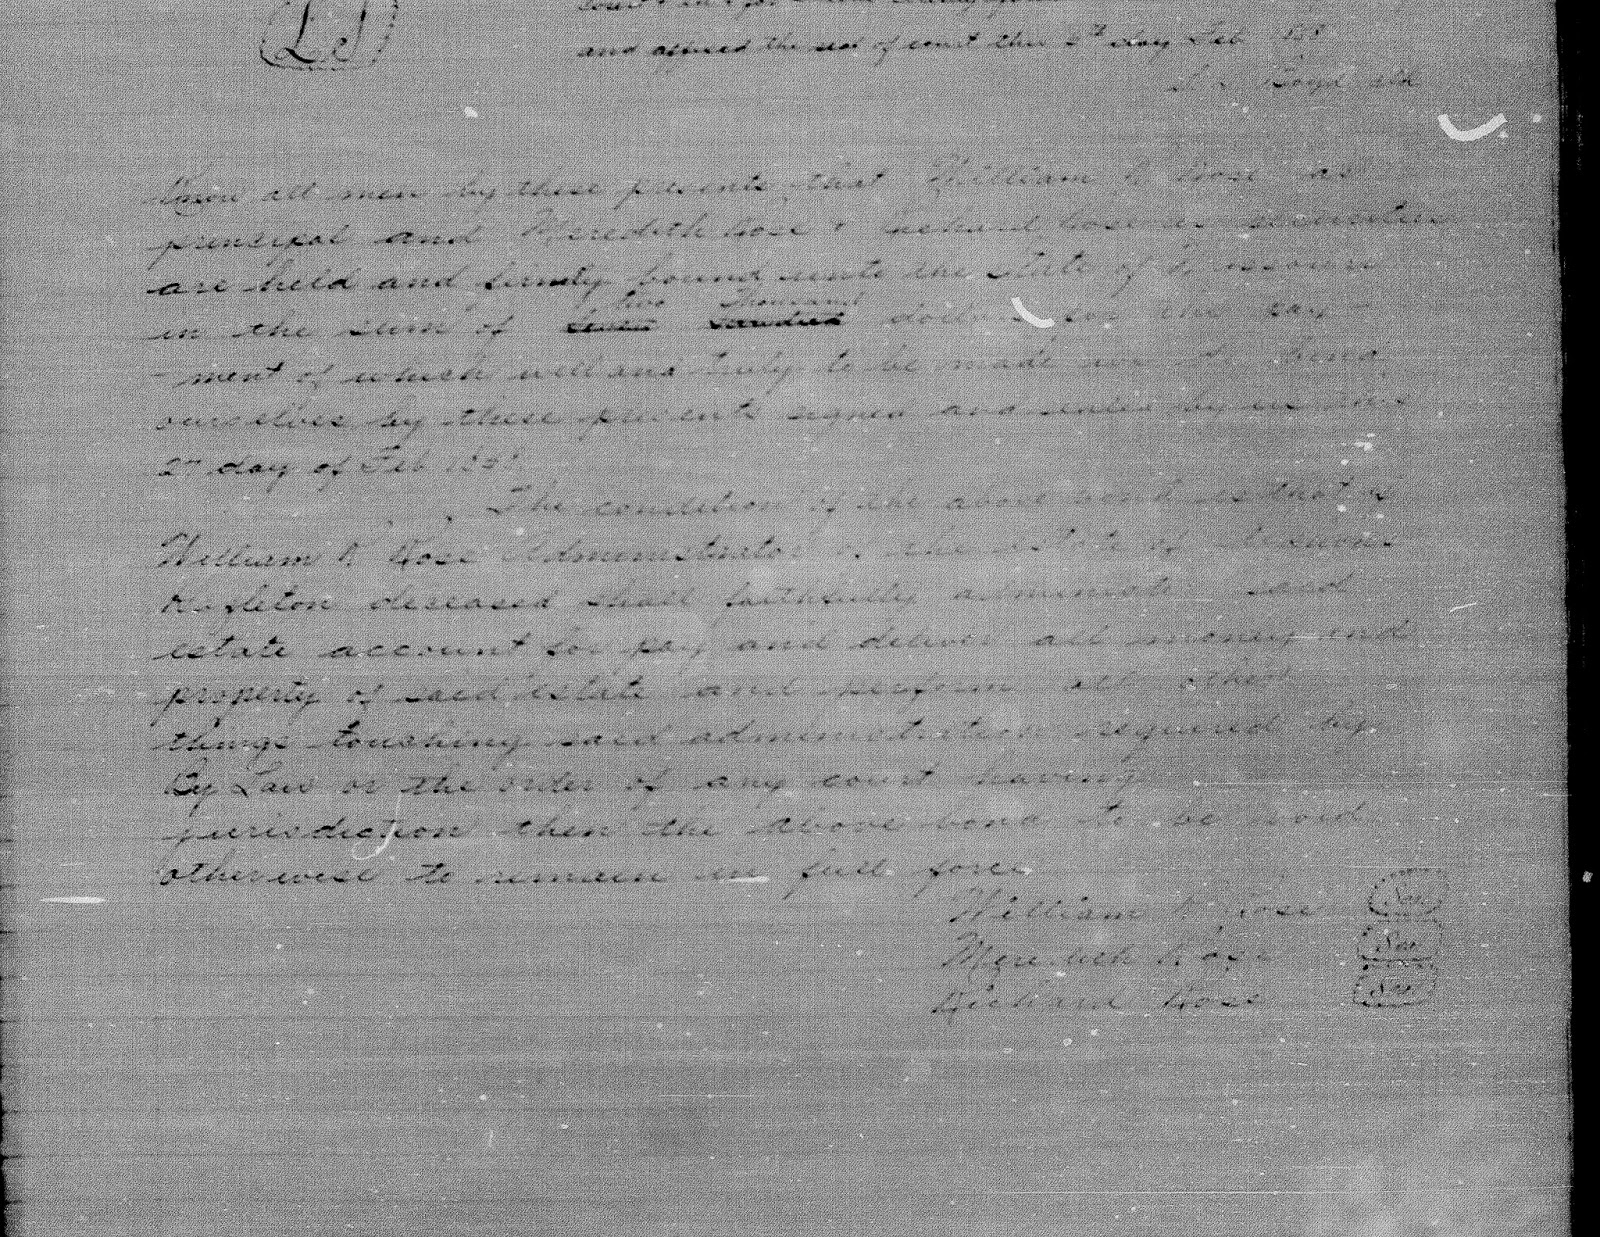 LS
and affixed the seal of court this 2nd day Feb 185
Boyd clk
Know all men by these presents that William R Rose as
principal and Meredith Rose & Richard Rose as securities
are held and firmly bound unto the state of Missouri
two thousand
in the sum of hundred dollars for the pay
-ment of which well and truly to be made we do bind
ourselves by these presents signed and sealed by us this
2nd day of Feb 185
The condition of the above bond is that if
William R Rose Administrator of the estate of
deceased shall faithfully administer said
estate account for pay and deliver all money and
property of said estate and perform all other
things touching said administration required by
By Law or the order of any court having
jurisdiction then the above bond to be void
otherwise to remain in full force
William R Rose
Meredith Rose
Richard Rose